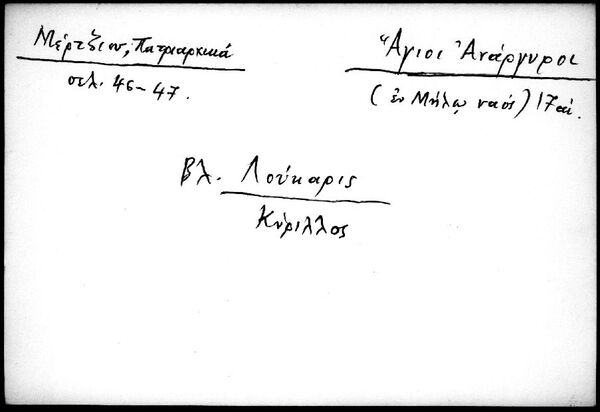 Μέρτζιου, Πατριαρχικά
σελ. 46-47.
Ἅγιοι Ἀνάργυροι
(ἐν Μήλῳ ναός) 17 αἰ.
βλ. Λούκαρις
Κύριλλος